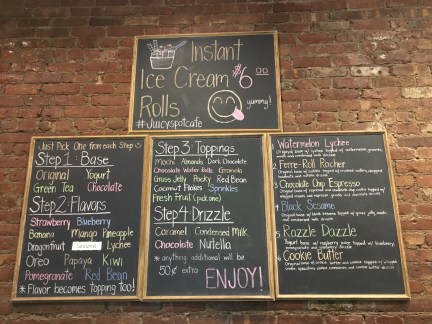 Instant
Ice Cream $6.00
Rolls
yummy!
#Juicyspotcafe
Just Pick One from each Step
Step 1: Base
Original Yogurt
Green Tea Chocolate
Step 2: Flavors
Strawberry Blueberry
Banana Mango Pineapple
Dragonfruit Lychee
Oreo Papaya Kiwi
Pomegranate Red Bean
* Flavor becomes topping too!
Step 3: Toppings
Mochi Almonds Dark Chocolate
Chocolate Wafer Rolls Granola
Grass Jelly Pocky Red Bean
Coconut Flakes Sprinkles
Fresh Fruit (pick one)
Step 4: Drizzle
Caramel Condensed Milk
Chocolate Nutella
* anything additional will be
50¢ extra
ENJOY!
Watermelon Lychee
Original base w/ lychee topped w/ watermelon,
and condensed milk drizzle
2 Ferr-Roll Rocher
3 Chocolate Chip Espresso
4 Black Sesame
5 Razzle Dazzle
Yogurt base w/ raspberry juice topped w/ blueberry,
pomegranate and cranberry drizzle
6 Cookie Butter